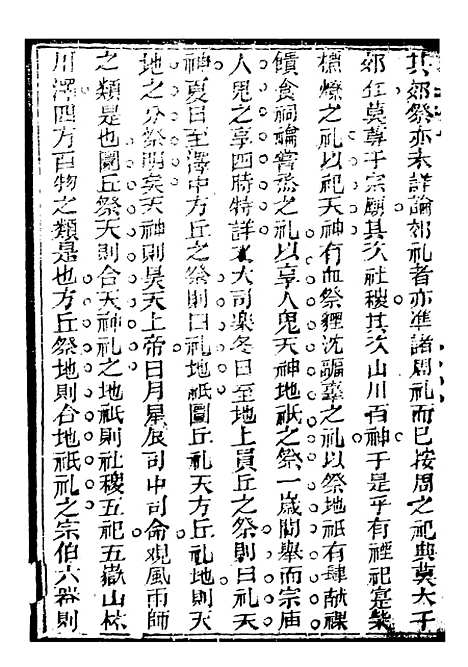 其郊祭亦未詳論郊礼者亦準諸周礼而已按周之祀典莫大于
郊丘莫尊于宗廟其次社稷其次山川百神于是乎有禋祀寔柴
槱燎之礼以祀天神有血祭貍沈疈辜之礼以祭地祇有肆献祼
饋食祠禴嘗烝之礼以享人鬼天神地祇之祭一歲間舉而宗庙
人鬼之享四時特詳大司楽冬日至地上員丘之祭則曰礼天
神夏日至澤中方丘之祭則曰礼地祇圜丘礼天方丘礼地則天
地之分祭明矣天神則昊天上帝日月星辰司中司命观風雨師
之類是也圜丘祭天則合天神礼之地祇則社稷五祀五嶽山林
川澤四方百物之類是也方丘祭地則合地祇礼之宗伯六器則